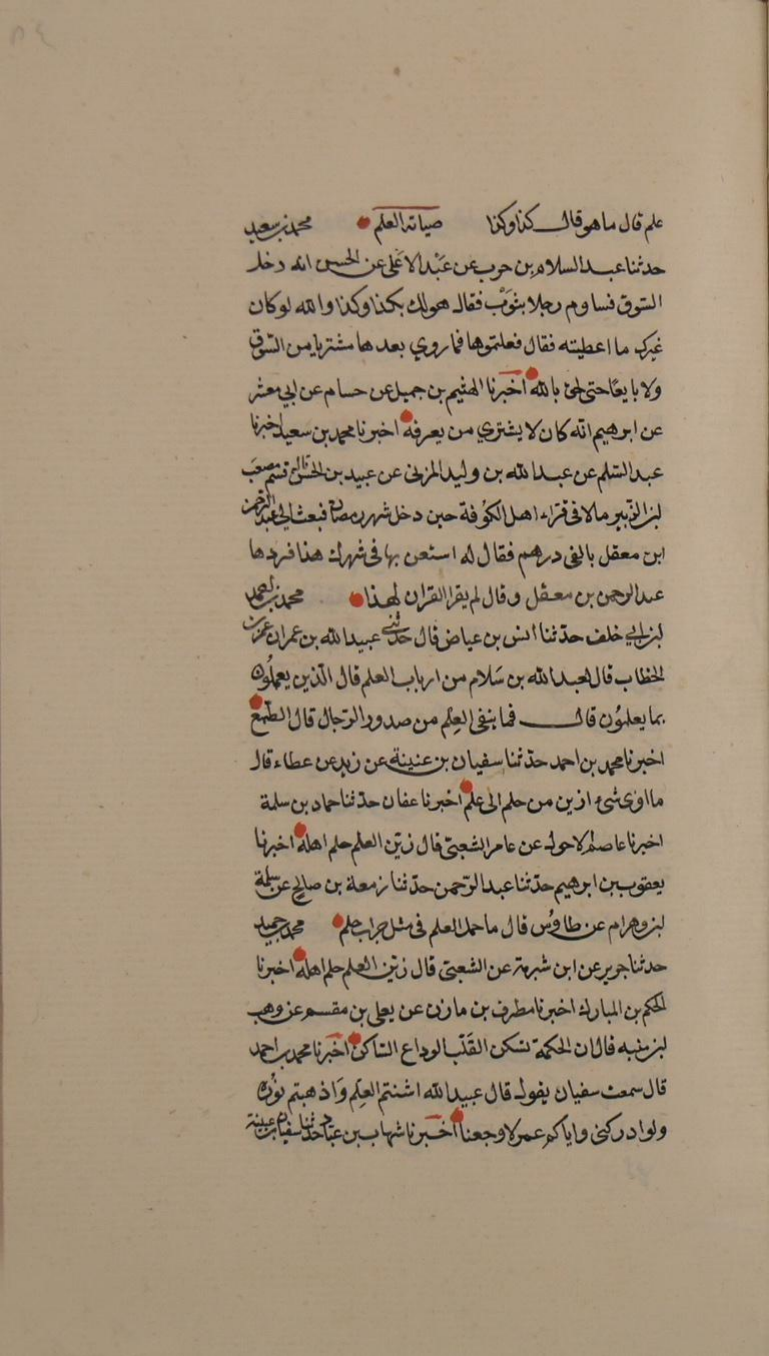 علم قال ما هو قال كذا وكذا صيانة العلم محمد بن سعيد
حدثنا عبد السلام بن حرب عن عبد الاعلى عن الحسن انه دخل
السوق فساوم رجلا بثوب فقال هو لك بكذا وكذا والله لو كان
غيرك ما اعطيته فقال فعلتموها فما روي بعدها مشتريا من السوق
ولا بايعا حتى لحق بالله اخبرنا الهثيم بن جميل عن حسام عن ابي معشر
عن ابرهيم انه كان لا يشتري من يعرفه اخبرنا محمد بن سعيد اخبرنا
عبد السلم عن عبد الله بن وليد المزني عن عبيد بن الحسن قال قسم مصعب
بن الزبير مالا في قراء اهل الكوفة حين دخل شهر رمضان فبعث الى عبد الرحمن
ابن معقل بالفى درهم فقال له استعن بها في شهرك هذا فردها
عبد الرحمن بن معقل وقال لم يقرا القران لهذا محمد بن احمد
بن ابي خلف حدثنا انس بن عياض قال حدثني عبيد الله بن عمران عمر بن
الخطاب قال لعبد الله بن سلام من ارباب العلم قال الذين يعملون
بما يعلمون قال فما ينفى العلم من صدور الرجال قال الطمع
اخبرنا محمد بن احمد حدثنا سفيان بن عنينة عن زيد عن عطاء قال
ما اوى شىء ازين من حلم الى علم اخبرنا عفان حدثنا حماد بن سلمة
اخبرنا عاصم الاحول عن عامر الشعبى قال زين العلم حلم اهله اخبرنا
يعقوب بن ابرهيم حدثنا عبد الرحمن حدثنا زمعة بن صالح عن سلمة
بن وهرام عن طاوس قال ما حمل العلم في مثل جراب حلم محمد بن حميد
حدثنا جرير عن ابن شبرمة عن الشعبى قال زين العلم حلم اهله اخبرنا
الحكم بن المبارك اخبرنا مطرف بن مازن عن يعلى بن مقسم عن وهب
بن منبه قال ان الحكمة تسكن القلب الوداع الساكن اخبرنا محمد بن احمد
قال سمعت سفيان يقول قال عبيد الله اشنتم العلم واذهبتم نوره
ولو ادركني واياكم عمر لاوجعنا اخبرنا شهاب بن عباد حدثنا سفيان بن عيينة